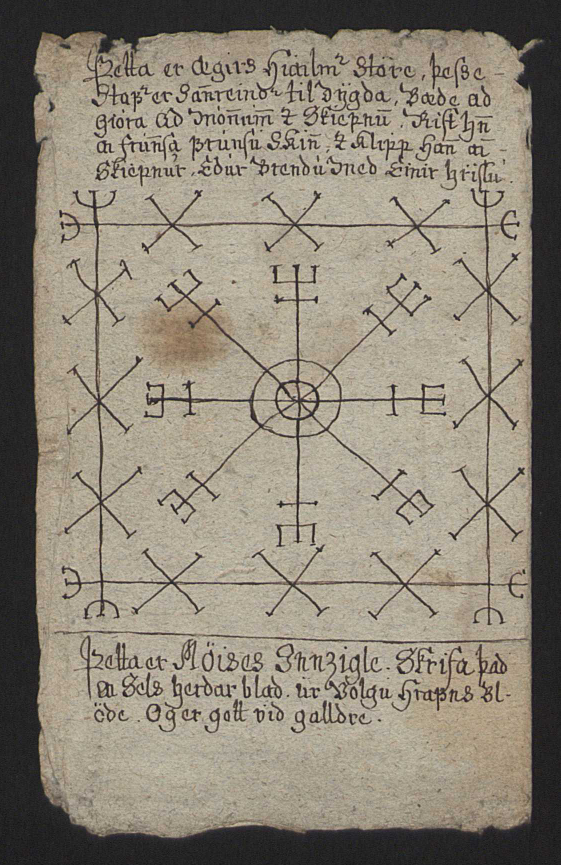 Þetta er Ægirs Hiailmr Störe, þesse -
Stafr er San̄reindr til Dygda, Bæde ad
giöra Ad Mönnum̄ & Skiepnū. Rist Hn̄
a þrúnsú Skin̄, & Klipp Han̄ a -
Skiepnur. Edur Brendú Med Einir Hrislú.
Þetta er Möises Innzigle. Skrifa þad
a Sels herdar blad. úr Völgu Hrafns Bl-
öde. Og er gott vid galldre.